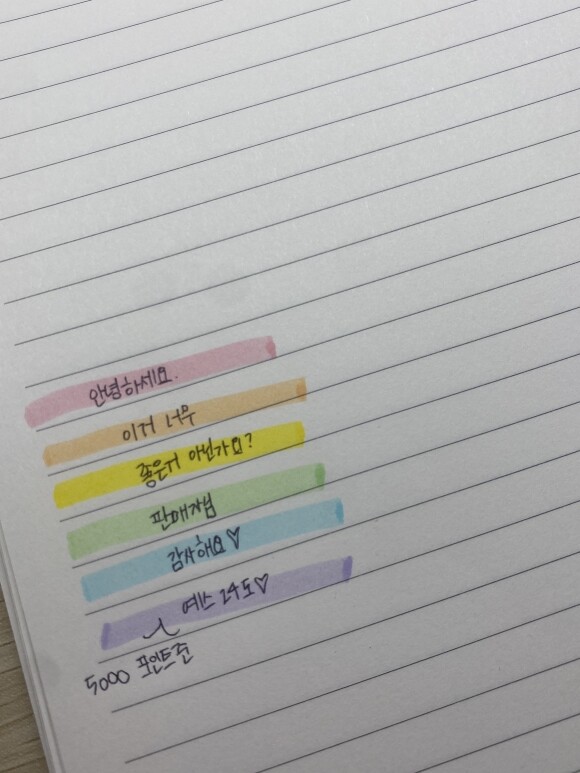 안녕하세요.
이거 너무
좋은거 아닌가요?
판매자님
감사해요♡
예스24도♡
5000 포인트준